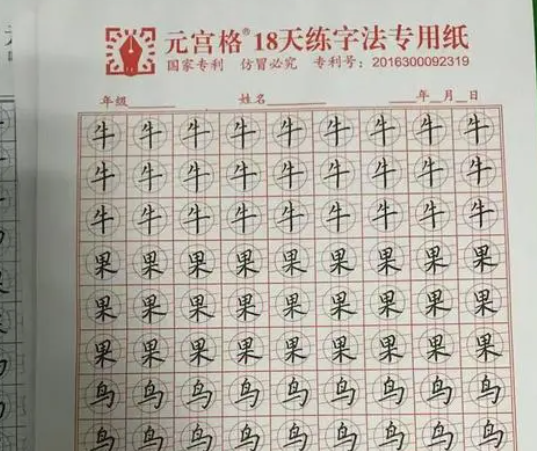 元宫格® 18天练字法专用纸
国家专利 仿冒必究 专利号：2016300092319
年级 姓名 年 月 日
牛 牛 牛 牛 牛 牛 牛 牛 牛
牛 牛 牛 牛 牛 牛 牛 牛 牛
牛 牛 牛 牛 牛 牛 牛 牛 牛
果 果 果 果 果 果 果 果 果
果 果 果 果 果 果 果 果 果
果 果 果 果 果 果 果 果 果
鸟 鸟 鸟 鸟 鸟 鸟 鸟 鸟 鸟
鸟 鸟 鸟 鸟 鸟 鸟 鸟 鸟 鸟